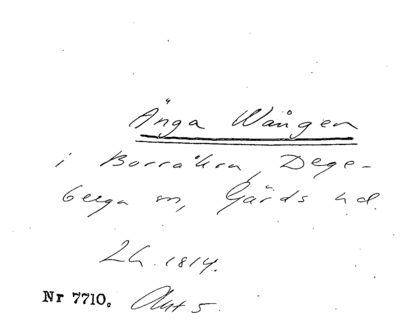 Änga Wången
i Borråkra, Dege-
berga sn, Gärds hd.
Lh. 1814.
Nr 7710. Akt 5.